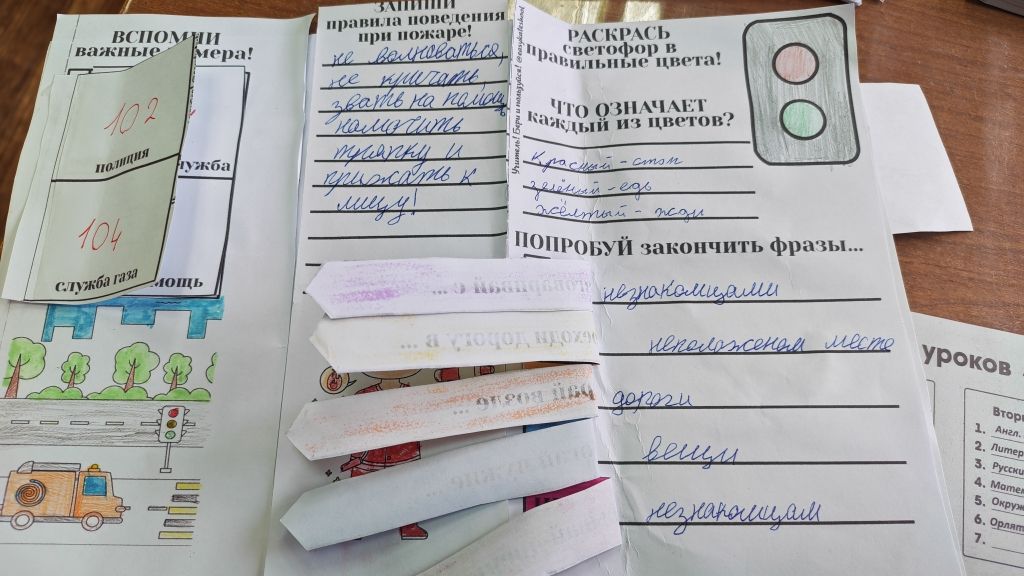 ВСПОМНИ
важные
мера!
102
полиция
служба
104
служба газа
мощь
ЗАПИШИ
правила поведения
при пожаре!
не волноваться,
не кричать
звать на помощь
намочить
тряпку и
прижать к
лицу!
Учитель! Бери и пользуйся! @easypeleschool
РАСКРАСЬ
светофор в
правильные цвета!
ЧТО ОЗНАЧАЕТ
каждый из цветов?
Красный - стоп
зелёный - едь
жёлтый - жди
ПОПРОБУЙ закончить фразы...
говаривай с ...
незнакомцами
еходи дорогу в ...
неположеном месте
рай возле ...
дороги
вещи
незнакомцам
уроков
Вторн
1. Англ.
2. Литер
3. Русски
4. Матем
5. Окруж
6. Орлят
7.